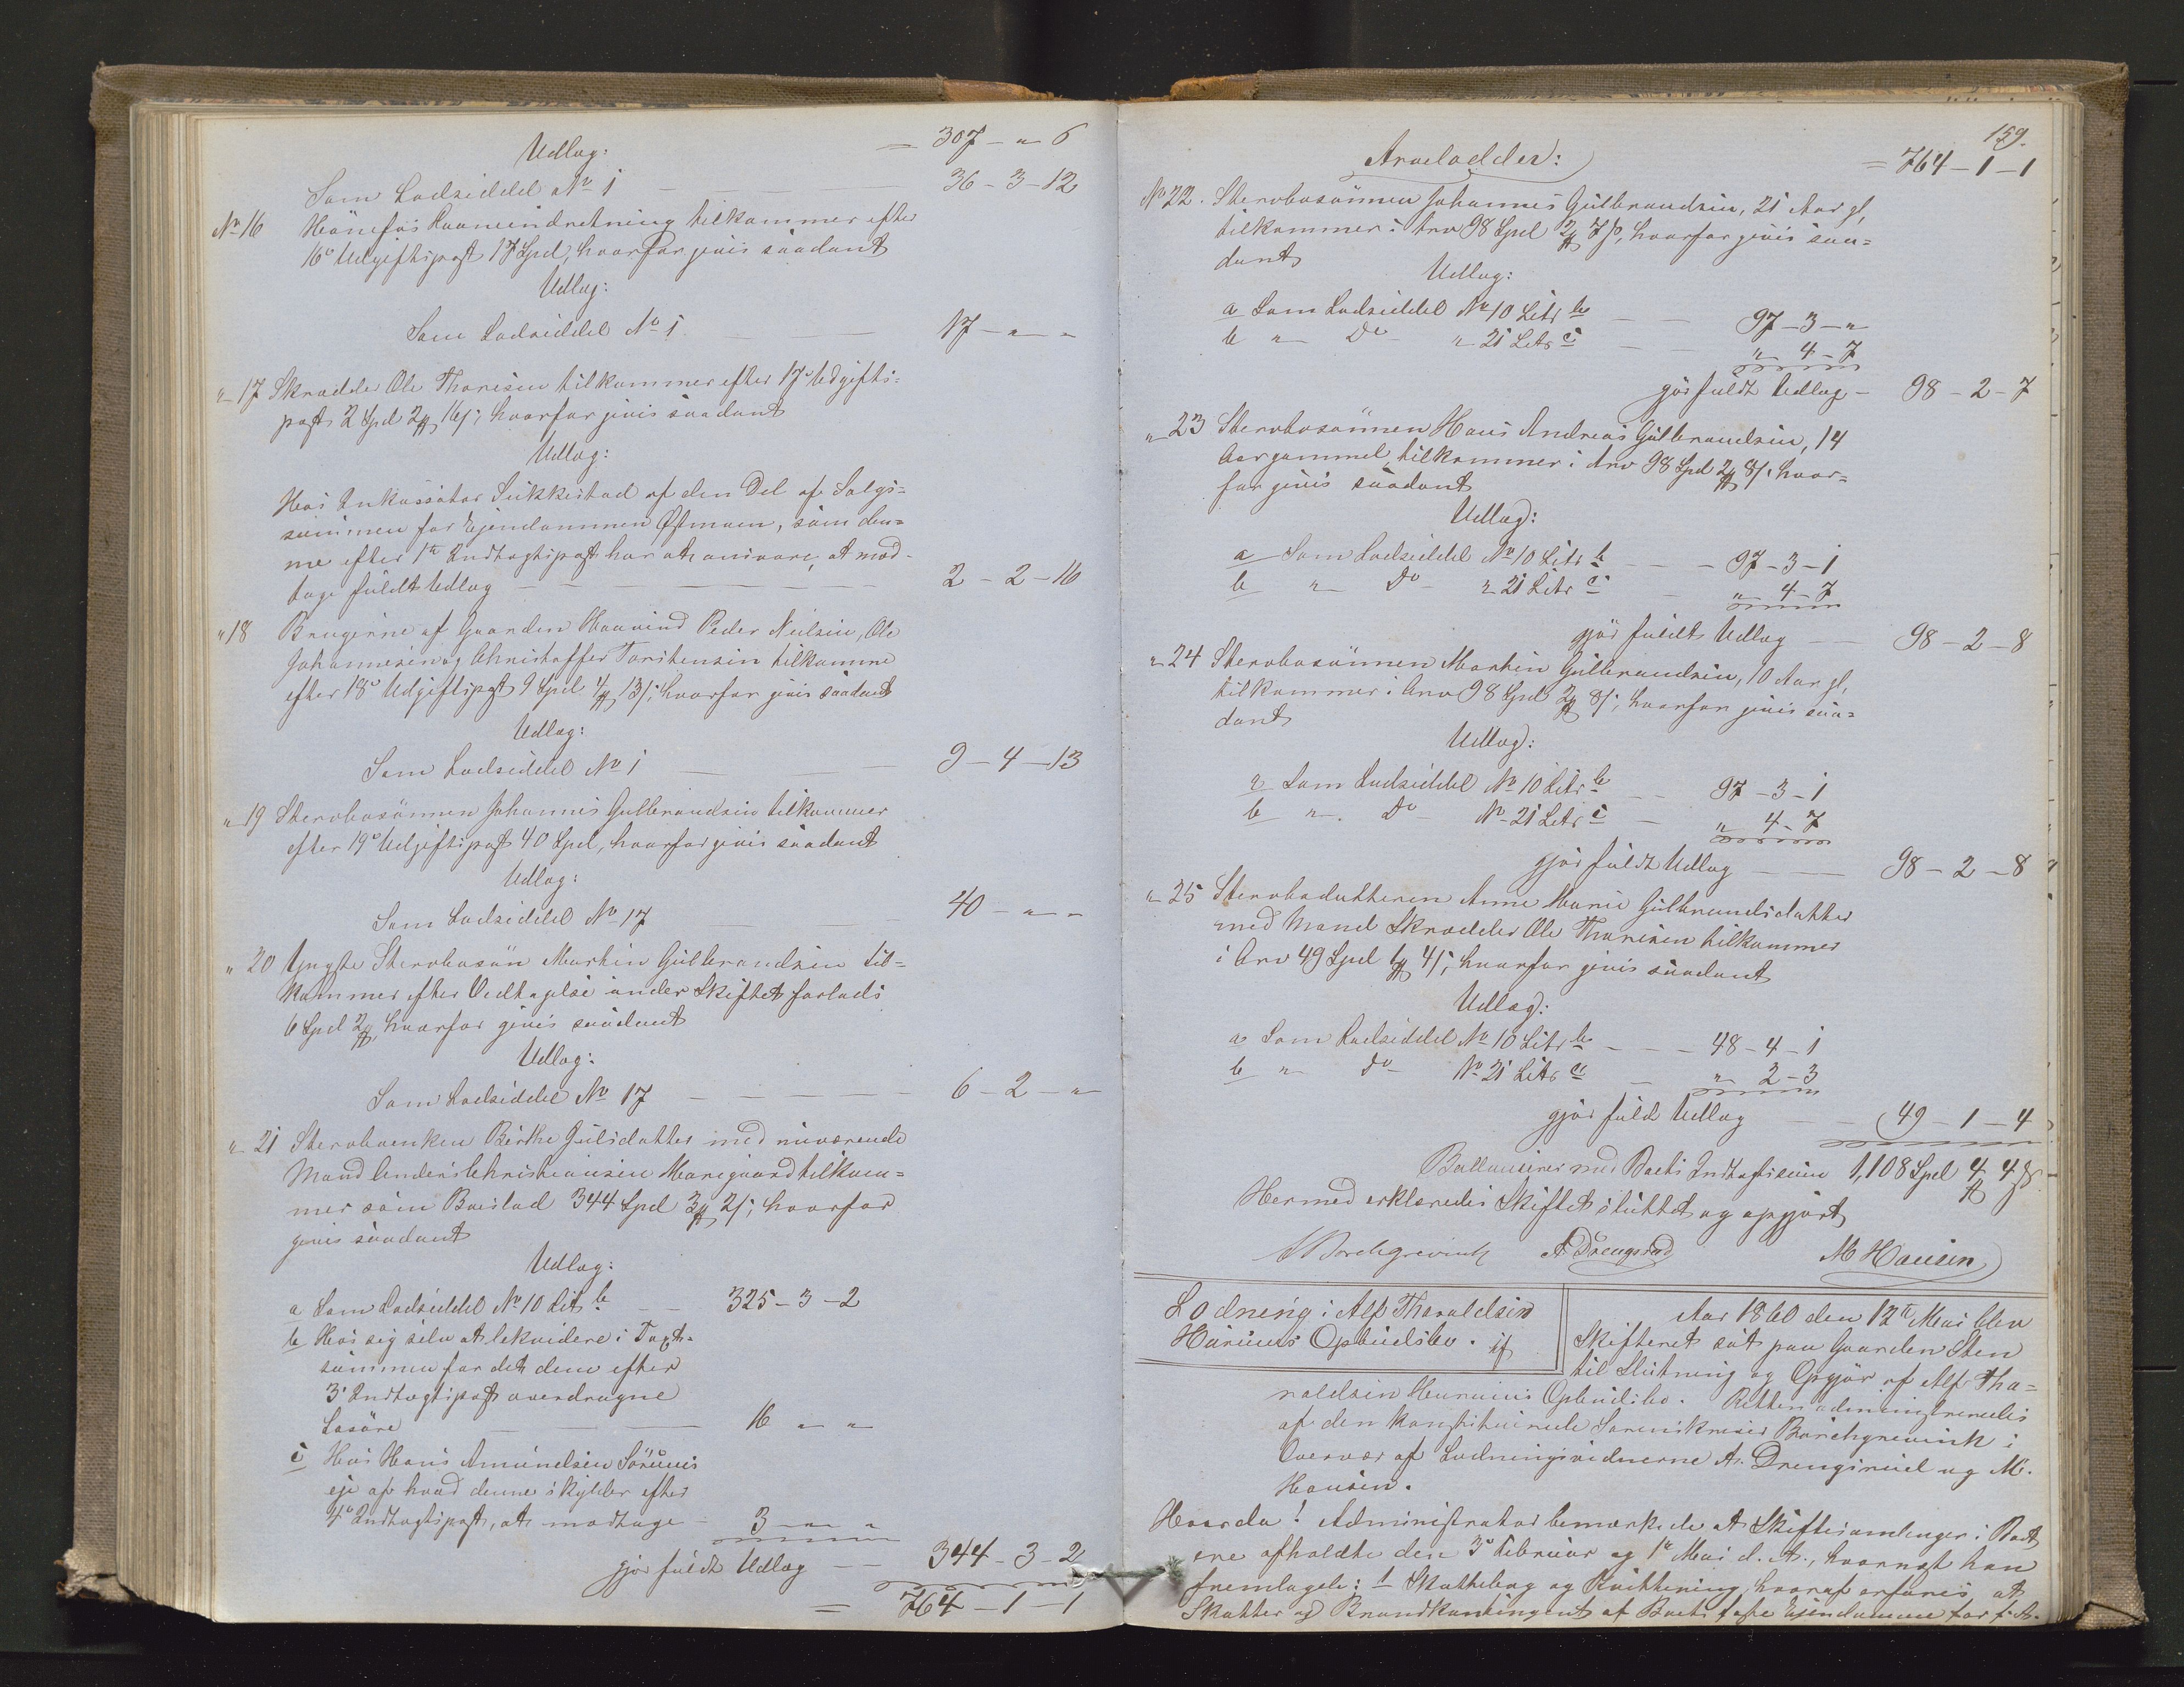 Udlag: = 307 - " 6
Som Lodseddel No 1 36 - 3 - 12
No 16 Hönefos Laaneindretning tilkommer efter
16o Udgiftspost 17 Spd, hvorfor gives saadant
Udlag:
Som Lodseddel No 1 17 - " - "
" 17 Skrædder Ole Thoresen tilkommer efter 17o Udgifts=
post 2 Spd 2 ₰ 16 s, hvorfor gives saadant
Udlag:
Hos Inkassator Sukkestad af den Del af Salgs=
summen for Ejendommen Ostmoen, som den=
ne efter 1te Indtægtspost har at ansvare, at mod=
tage fuldt Udlag 2 - 2 - 16
" 18 Brugerne af Gaarden Haavind Peder Neilsen, Ole
Johannesen og Christoffer Torstensen tilkomme
efter 18o Udgiftspost 9 Spd 4 ₰ 13 s, hvorfor gives saadant
Udlag:
Som Lodseddel No 1 9 - 4 - 13
" 19 Sterbosönnen Johannes Gulbrandsen tilkommer
efter 19o Udgiftspost 40 Spd, hvorfor gives saadant
Udlag:
Som Lodseddel No 17 40 - " - "
" 20 Yngste Sterbosön Martin Gulbrandsen til=
kommer efter Vedtagelse under Skiftet forlods
6 Spd 2 ₰, hvorfor gives saadant
Udlag:
Som Lodseddel No 17 6 - 2 - "
" 21 Sterboenken Birthe Julsdatter med nuværende
Mand Anders Christiansen Moregaard tilkom=
mer som Boeslod 344 Spd 3 ₰ 2 s, hvorfor
gives saadant
Udlag:
a Som Lodseddel No 10 Litr b 325 - 3 - 2
b Hos sig selv at lekvidere i Taxt=
summen for det dem efter
3o Indtægtspost overdragne
Losöre 16 " "
c Hos Hans Amundsen Sörums
eje af hvad denne skylder efter
4o Indtægtspost, at modtage 3 - " "
gjør fuldt Udlag 344 - 3 - 2
= 764 - 1 - 1
159.
Arvelodder: = 764 - 1 - 1
No 22. Sterbosönnen Johannes Gulbrandsen, 21 Aar gl,
tilkommer i Arv 98 Spd 2 ₰ 7 s, hvorfor gives saa=
dant
Udlag:
a Som Lodseddel No 10 Litr b 97 - 3 - "
b " Do " 21 Litr c " 4 - 7
gjør fuldt Udlag - 98 - 2 - 7
" 23 Sterbosönnen Hans Andreas Gulbrandsen, 14
Aar gammel tilkommer i Arv 98 Spd 2 ₰ 8 s, hvor=
for gives saadant
Udlag:
a Som Lodseddel No 10 Litr b 97 - 3 - 1
b " Do " 21 Litr c " 4 - 7
gjør fuldt Udlag 98 - 2 - 8
" 24 Sterbosönnen Martin Gulbrandsen, 10 Aar gl,
tilkommer i Arv 98 Spd 2 ₰ 8 s, hvorfor gives saa=
dant
Udlag:
a Som Lodseddel No 10 Litr b 97 - 3 - 1
b " Do No 21 Litr c " 4 - 7
gjør fuldt Udlag 98 - 2 - 8
" 25 Sterbodatteren Anne Marie Gulbrandsdatter
med Mand Skrædder Ole Thoresen tilkommer
i Arv 49 Spd 1 ₰ 4 s, hvorfor gives saadant
Udlag:
a Som Lodseddel No 10 Litr b 48 - 4 - 1
b " Do No 21 Litr c " 2 - 3
gjør fuld Udlag 49 - 1 - 4
Ballancerer med Boets Indtægtssum 1,108 Spd 4 ₰ 4 s.
Hermed erklæredes Skiftet sluttet og opgjort
Borchgrevink A Drengsrud M Hansen
Lodning i Alf Tharaldsen
Harums Opbudsbo.
Aar 1860 den 12te Mai blev
Skifteret sat paa Gaarden Sten
til Slutning og Opgjör af Alf Tha=
raldsen Harums Opbudsbo. Retten administreredes
af den konstituerede Sorenskriver Borchgrevink i
Overvær af Lodningsvidnerne A. Drengsrud og M.
Hansen.
Hvorda! Administrator bemærkede at Skiftesamlinger i Boet
ere afholdte den 3o Februar og 1te Mai d. A., hvornæst han
fremlagde: 1 Skattebog og Kvittering, hvoraf erfares at
Skatter og Brandkontingent af Boets faste Ejendomme for f. A.